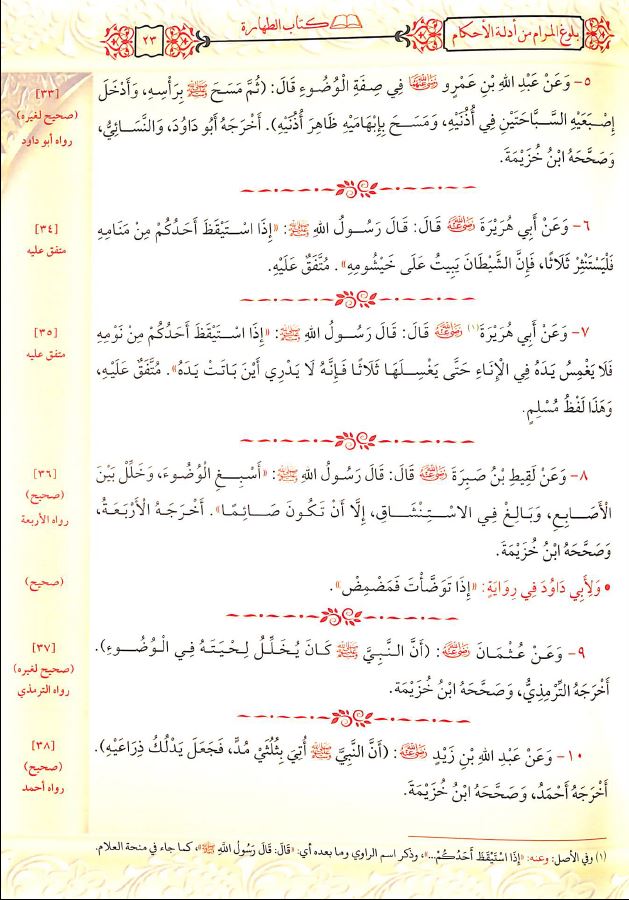 بلوغ المرام من أدلة الأحكام
كتاب الطهارة
٢٣
٥- وَعَنْ عَبْدِ اللهِ بْنِ عَمْرٍو ﵄ فِي صِفَةِ الْوُضُوءِ قَالَ: (ثُمَّ مَسَحَ ﷺ بِرَأْسِهِ، وَأَدْخَلَ
[٣٣]
إِصْبَعَيْهِ السَّبَّاحَتَيْنِ فِي أُذُنَيْهِ، وَمَسَحَ بِإِبْهَامَيْهِ ظَاهِرَ أُذُنَيْهِ). أَخْرَجَهُ أَبُو دَاوُدَ، وَالنَّسَائِيُّ،
(صحيح لغيره)
رواه أبو داود
وَصَحَّحَهُ ابْنُ خُزَيْمَةَ.
٦- وَعَنْ أَبِي هُرَيْرَةَ ﵁ قَالَ: قَالَ رَسُولُ اللهِ ﷺ: «إِذَا اسْتَيْقَظَ أَحَدُكُمْ مِنْ مَنَامِهِ
[٣٤]
فَلْيَسْتَنْثِرْ ثَلَاثًا، فَإِنَّ الشَّيْطَانَ يَبِيتُ عَلَى خَيْشُومِهِ». مُتَّفَقٌ عَلَيْهِ.
متفق عليه
٧- وَعَنْ أَبِي هُرَيْرَةَ(١) ﵁ قَالَ: قَالَ رَسُولُ اللهِ ﷺ: «إِذَا اسْتَيْقَظَ أَحَدُكُمْ مِنْ نَوْمِهِ
[٣٥]
فَلَا يَغْمِسُ يَدَهُ فِي الْإِنَاءِ حَتَّى يَغْسِلَهَا ثَلَاثًا فَإِنَّهُ لَا يَدْرِي أَيْنَ بَاتَتْ يَدَهُ». مُتَّفَقٌ عَلَيْهِ،
متفق عليه
وَهَذَا لَفْظُ مُسْلِمٍ.
٨- وَعَنْ لَقِيطِ بْنِ صَبِرَةَ ﵁ قَالَ: قَالَ رَسُولُ اللهِ ﷺ: «أَسْبِغِ الْوُضُوءَ، وَخَلِّلْ بَيْنَ
[٣٦]
(صحيح)
الْأَصَابِعِ، وَبَالِغْ فِي الاسْتِنْشَاقِ، إِلَّا أَنْ تَكُونَ صَائِمًا». أَخْرَجَهُ الْأَرْبَعَةُ،
رواه الأربعة
وَصَحَّحَهُ ابْنُ خُزَيْمَةَ.
• وَلِأَبِي دَاوُدَ فِي رِوَايَةٍ: «إِذَا تَوَضَّأْتَ فَمَضْمِضْ».
(صحيح)
٩- وَعَنْ عُثْمَانَ ﵁: (أَنَّ النَّبِيَّ ﷺ كَانَ يُخَلِّلُ لِحْيَتَهُ فِي الْوُضُوءِ).
[٣٧]
(صحيح لغيره)
أَخْرَجَهُ التِّرْمِذِيُّ، وَصَحَّحَهُ ابْنُ خُزَيْمَة.
رواه الترمذي
١٠- وَعَنْ عَبْدِ اللهِ بْنِ زَيْدٍ ﵁: (أَنَّ النَّبِيَّ ﷺ أُتِيَ بِثُلُثَيْ مُدٍّ، فَجَعَلَ يَدْلُكُ ذِرَاعَيْهِ).
[٣٨]
(صحيح)
أَخْرَجَهُ أَحْمَدُ، وَصَحَّحَهُ ابْنُ خُزَيْمَةَ.
رواه أحمد
(١) وفي الأصل: وعنه: «إِذَا اسْتَيْقَظَ أَحَدُكُمْ...»، وذكر اسم الراوي وما بعده أي: «قَالَ: قَالَ رَسُولُ اللهِ ﷺ»، كما جاء في منحة العلام.